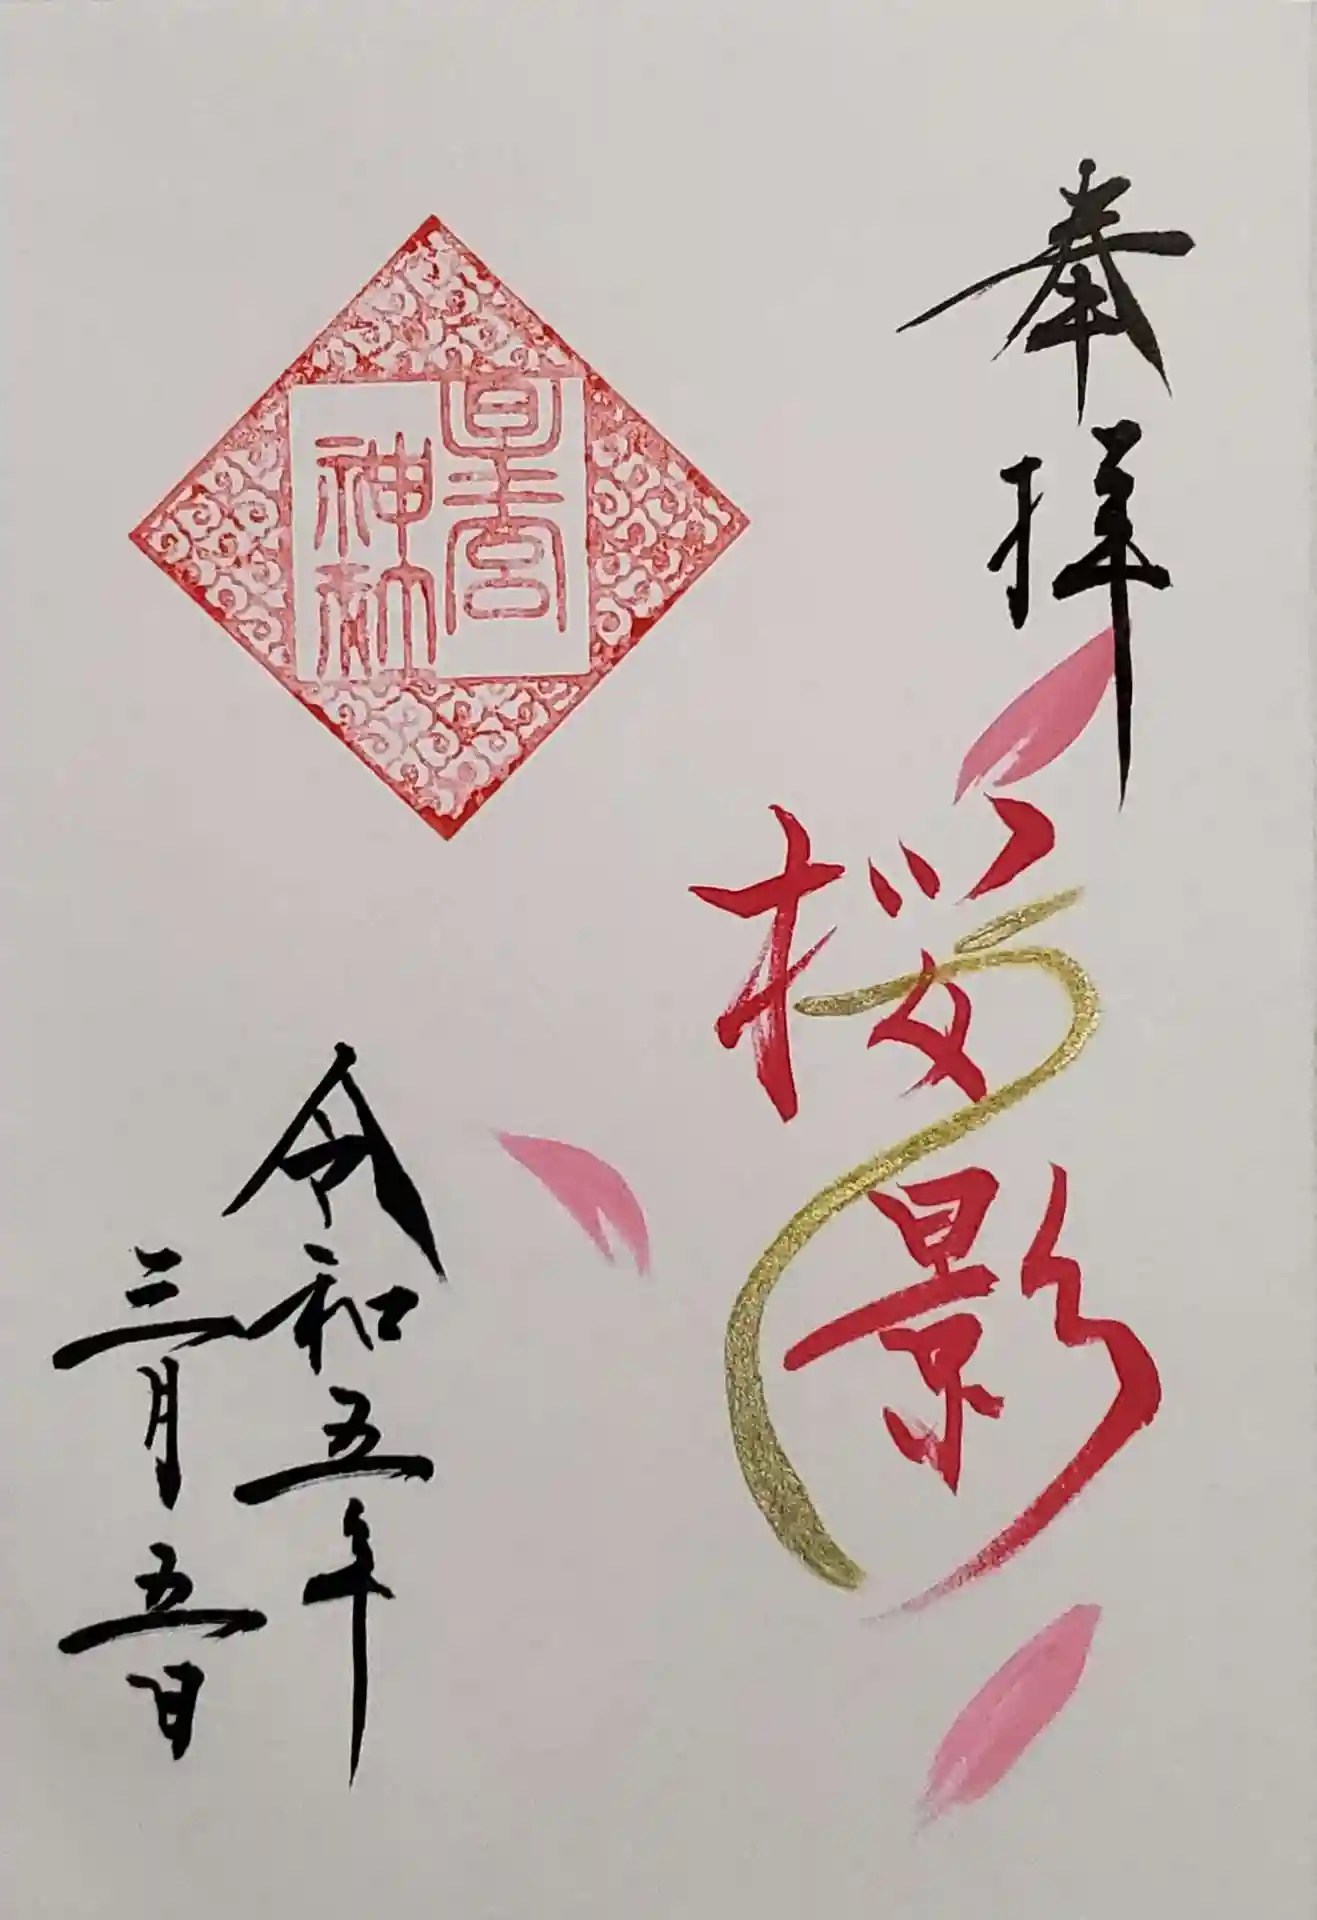 奉拝
桜影
皇宮
神社
令和五年
三月五日